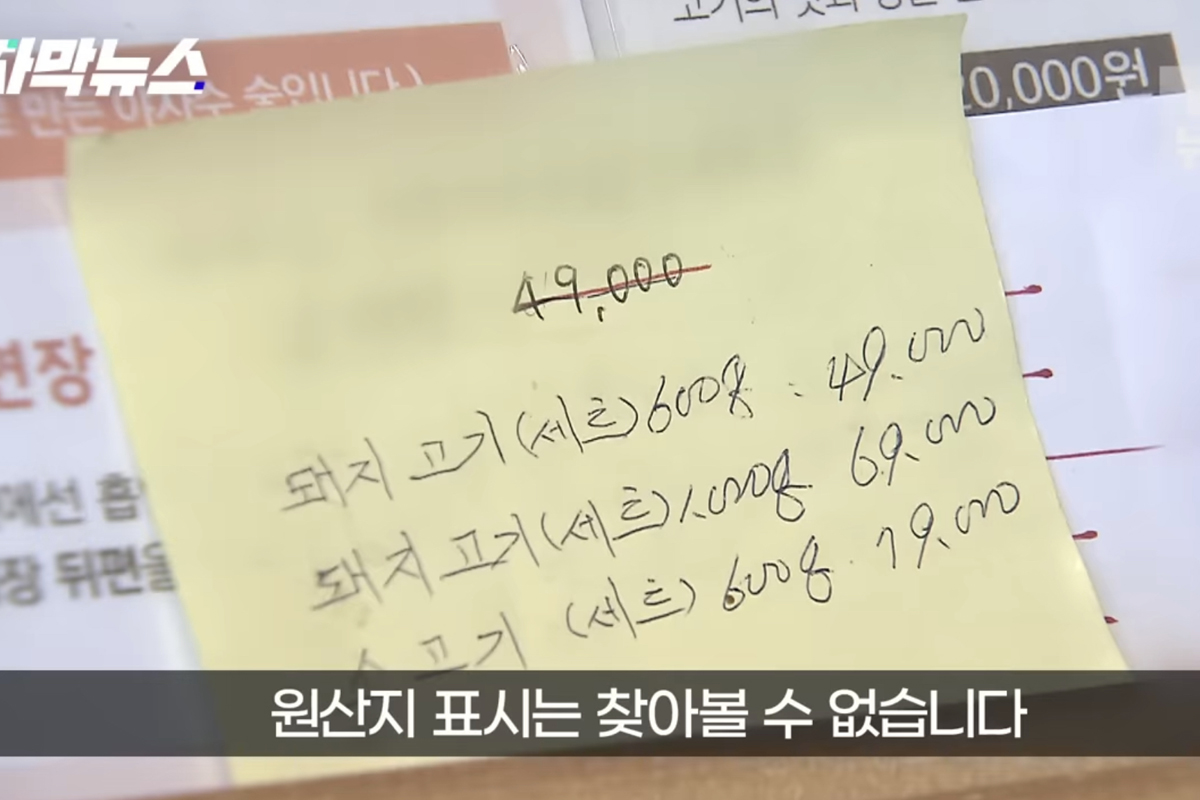 자막뉴스
만드는 아사주 술입니다.)
20,000원
49,000
돼지고기(세트)600g : 49.000
돼지고기(세트)1.000g 69.000
소고기 (세트) 600g. 79.000
면장
에선 흡
장 뒤편을
원산지 표시는 찾아볼 수 없습니다